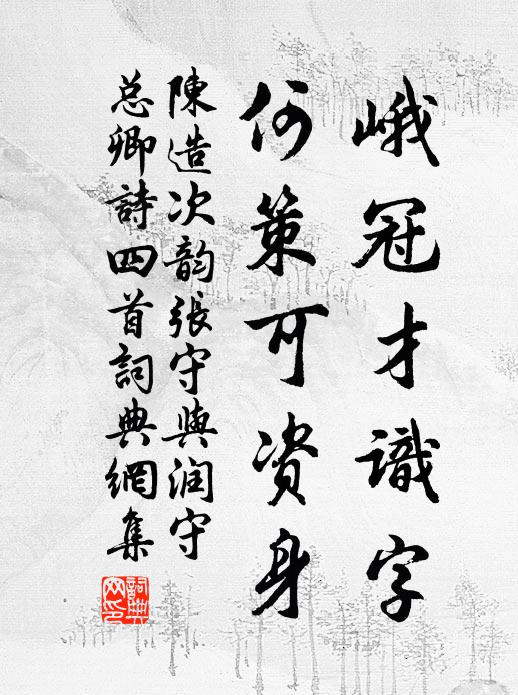 峨冠才識字
何策可资身
陳造次韵張守與润守
总卿詩四首詞典網集